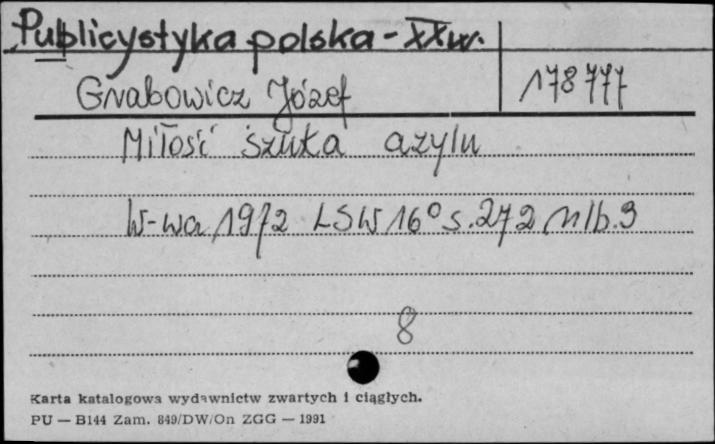 Publicystyka polska - XXw.
Grabowicz Józef 178777
Miłość szuka azylu
W-wa 1972 LSW 16° s. 272 nlb. 3
8
Karta katalogowa wydawnictw zwartych i ciągłych.
PU — B144 Zam. 849/DW/On ZGG — 1991